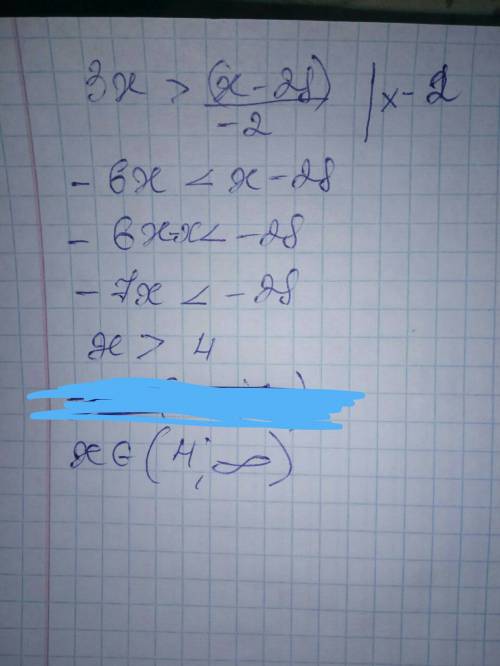 3x > (x - 28) | x - 2
-2
- 6x < x - 28
- 6x - x < - 28
- 7x < - 28
x > 4
x ∈ (4; ∞)